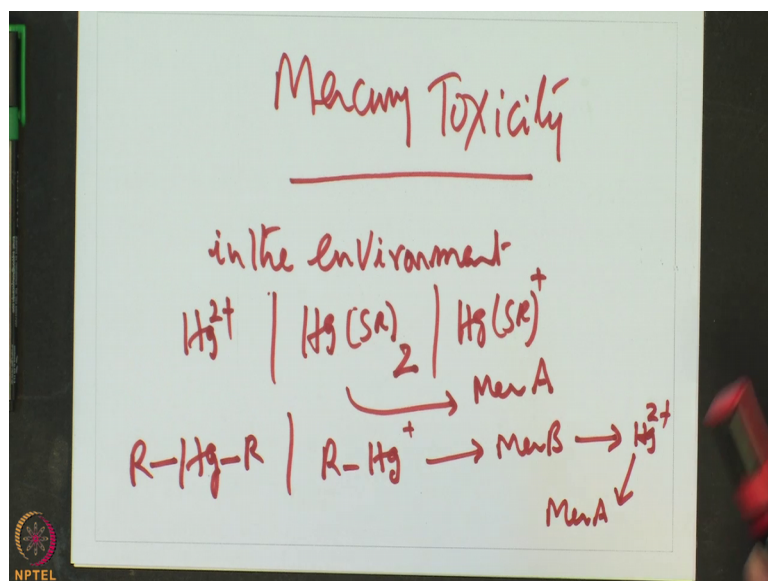 Mercury Toxicity
in the environment
Hg²⁺ | Hg(SR)₂ | Hg(SR)⁺
→ MerA
R-Hg-R | R-Hg⁺ → MerB → Hg²⁺
MerA
NPTEL